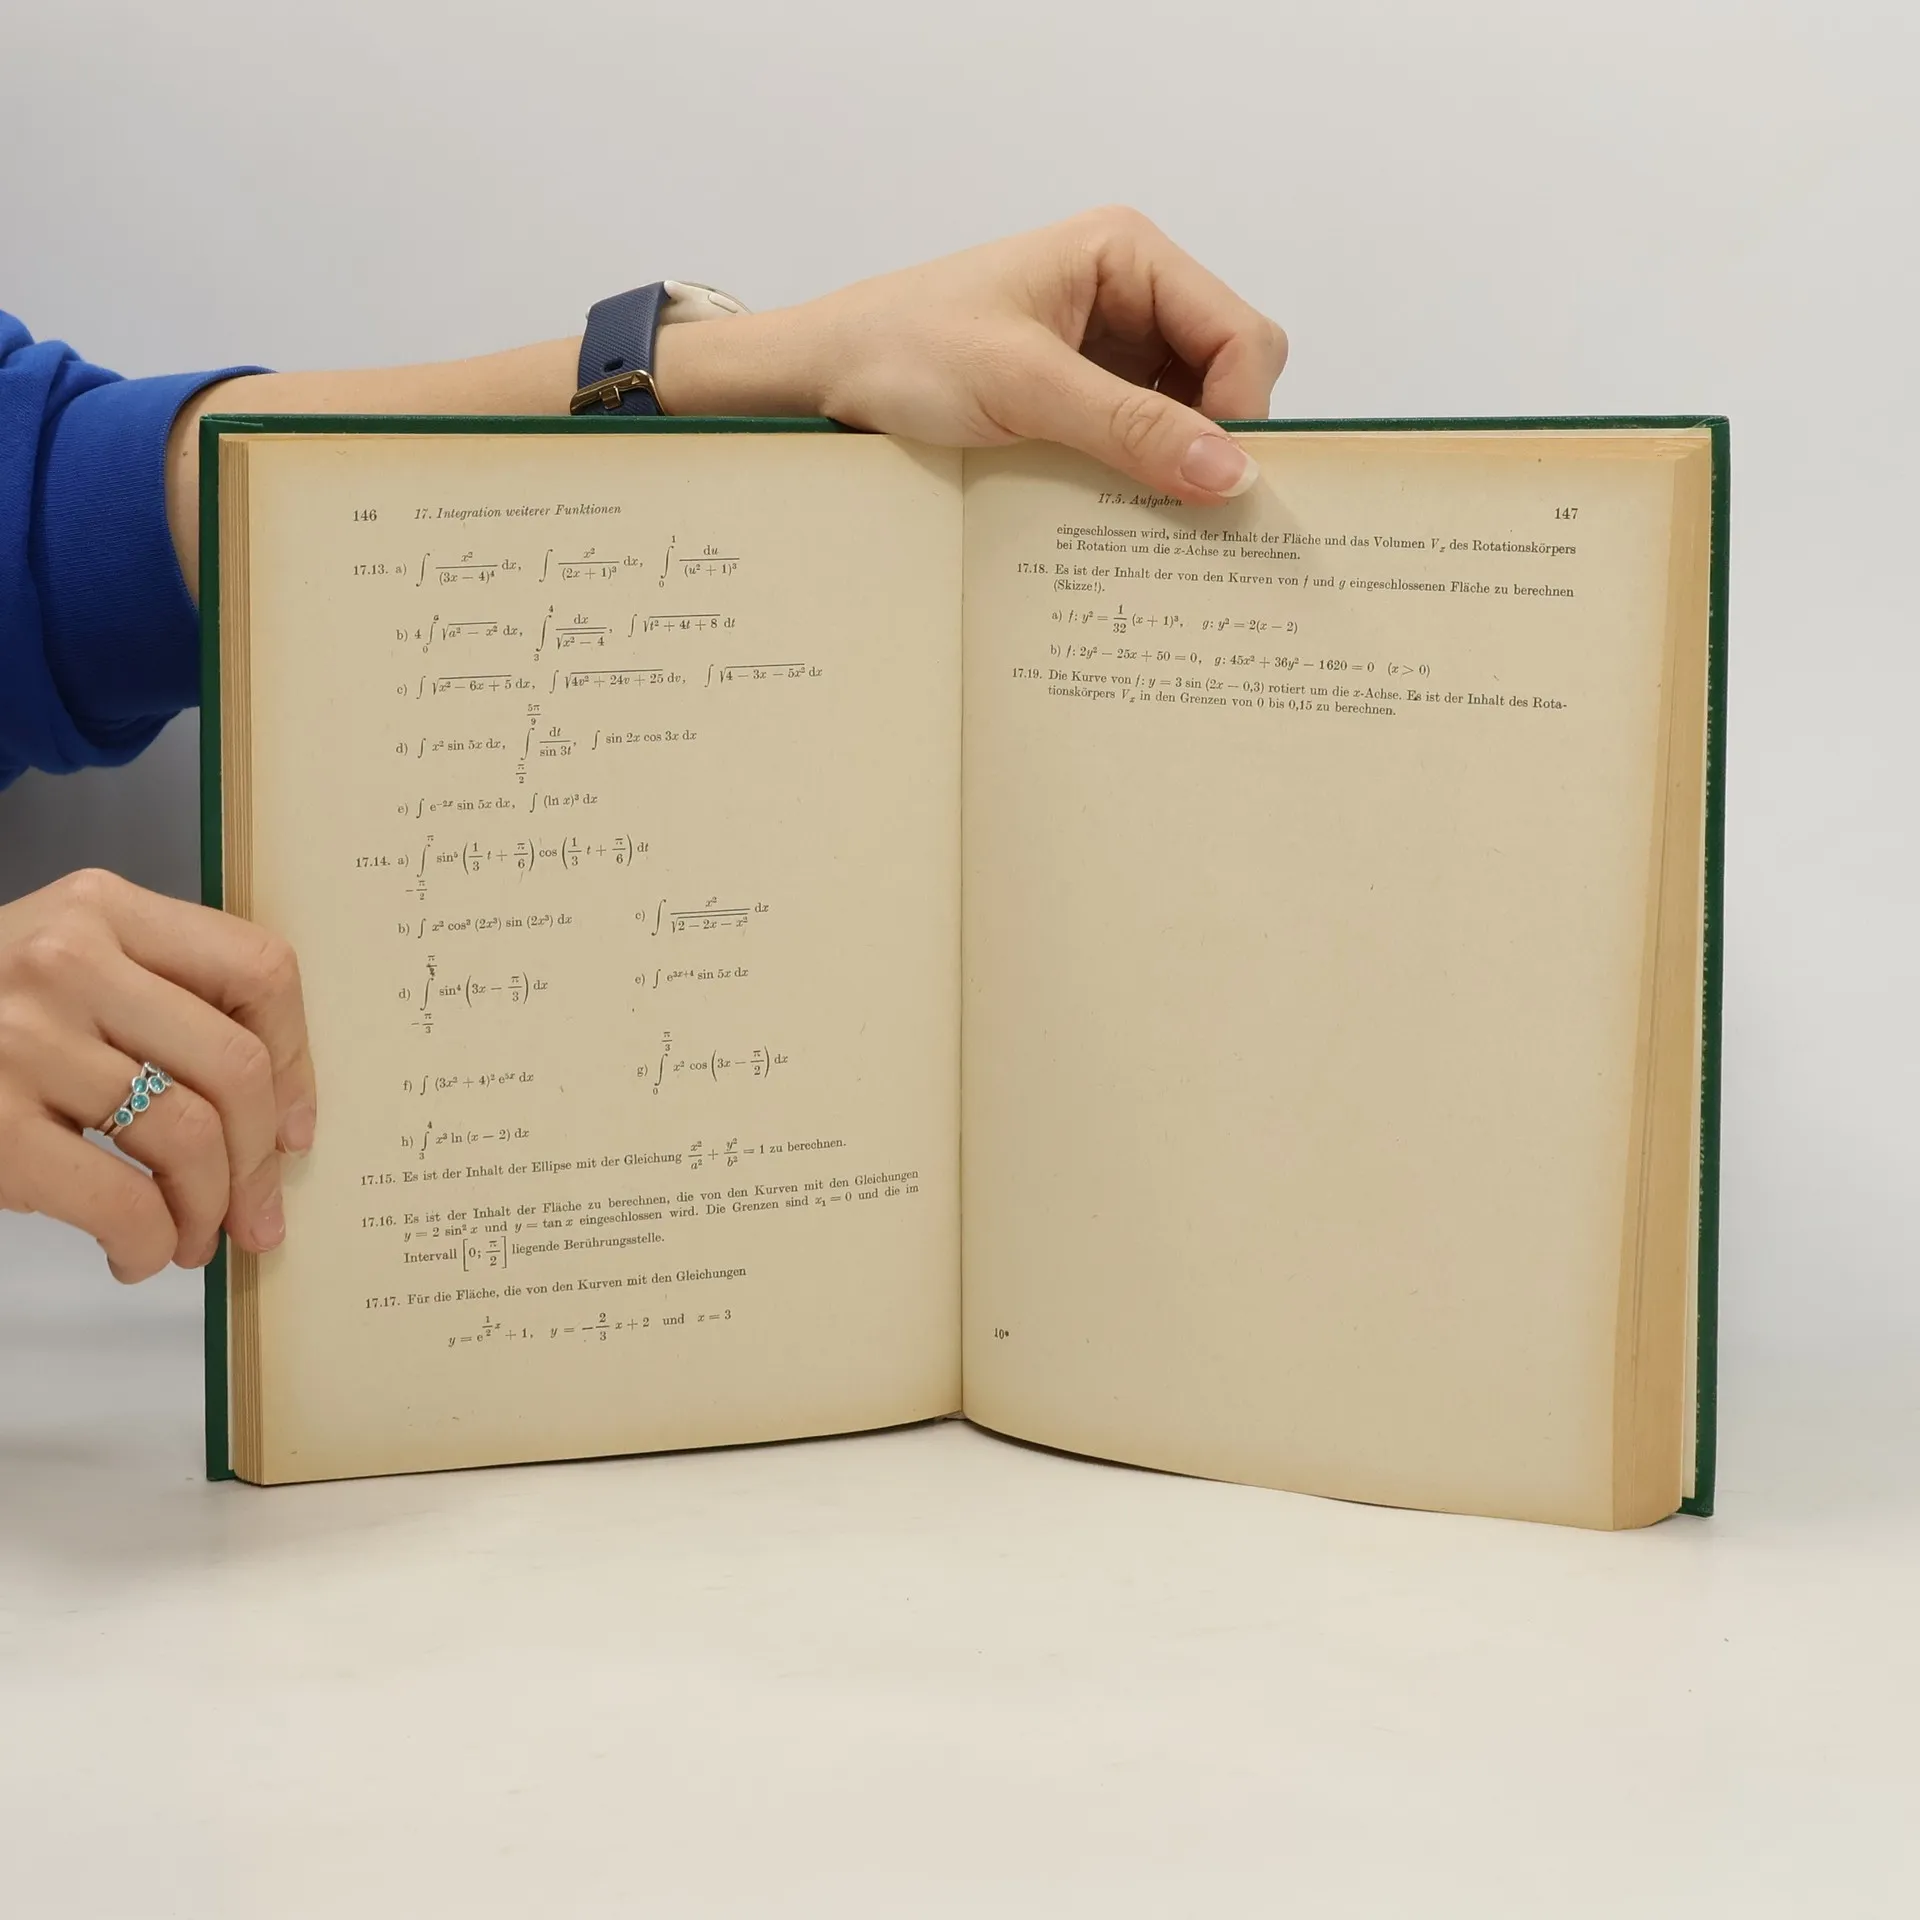 146 17. Integration weiterer Funktionen
17.13. a) ∫ x²/(3x − 4)⁴ dx, ∫ x²/(2x + 1)³ dx, ∫₀¹ du/(u² + 1)³
b) 4 ∫₀ᵃ √(a² − x²) dx, ∫₃⁴ dx/√(x² − 4), ∫ √(t² + 4t + 8) dt
c) ∫ √(x² − 6x + 5) dx, ∫ √(4v² + 24v + 25) dv, ∫ √(4 − 3x − 5x²) dx
d) ∫ x² sin 5x dx, ∫_{π/2}^{5π/9} dt/sin 3t, ∫ sin 2x cos 3x dx
e) ∫ e⁻²ˣ sin 5x dx, ∫ (ln x)³ dx
17.14. a) ∫_{−π/2}^{π} sin⁵ (1/3 t + π/6) cos (1/3 t + π/6) dt
b) ∫ x² cos³ (2x³) sin (2x³) dx c) ∫ x²/√(2 − 2x − x²) dx
d) ∫_{−π/3} sin⁴ (3x − π/3) dx e) ∫ e³ˣ⁺⁴ sin 5x dx
f) ∫ (3x² + 4)² e⁵ˣ dx g) ∫₀^{π/3} x² cos (3x − π/2) dx
h) ∫₃⁴ x³ ln (x − 2) dx
17.15. Es ist der Inhalt der Ellipse mit der Gleichung x²/a² + y²/b² = 1 zu berechnen.
17.16. Es ist der Inhalt der Fläche zu berechnen, die von den Kurven mit den Gleichungen
y = 2 sin² x und y = tan x eingeschlossen wird. Die Grenzen sind x₁ = 0 und die im
Intervall [0; π/2] liegende Berührungsstelle.
17.17. Für die Fläche, die von den Kurven mit den Gleichungen
y = e^{1/2 x} + 1, y = −2/3 x + 2 und x = 3
17.5. Aufgaben 147
eingeschlossen wird, sind der Inhalt der Fläche und das Volumen Vₓ des Rotationskörpers
bei Rotation um die x-Achse zu berechnen.
17.18. Es ist der Inhalt der von den Kurven von f und g eingeschlossenen Fläche zu berechnen
(Skizze!).
a) f: y² = 1/32 (x + 1)³, g: y² = 2(x − 2)
b) f: 2y² − 25x + 50 = 0, g: 45x² + 36y² − 1620 = 0 (x > 0)
17.19. Die Kurve von f: y = 3 sin (2x − 0,3) rotiert um die x-Achse. Es ist der Inhalt des Rota-
tionskörpers Vₓ in den Grenzen von 0 bis 0,15 zu berechnen.
10*